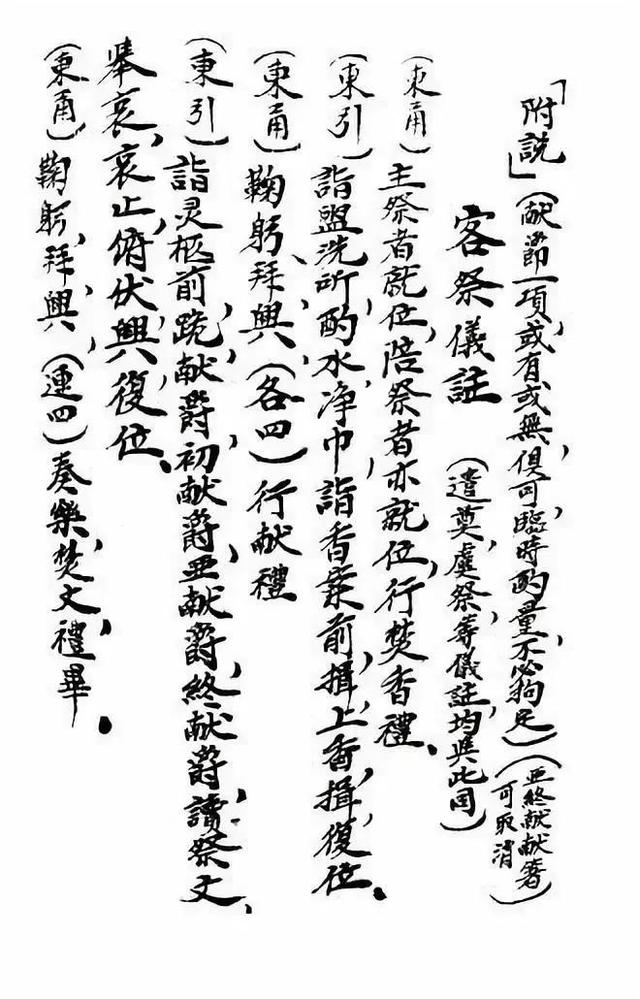 「附説」(献節一項,或有或無,俱可臨時酌量,不必拘定)(亜終献献箸可取消)
客祭儀註 (遣奠,虞祭等儀註,均與此同)
(東甬) 主祭者就位,陪祭者亦就位,行焚香禮、
(東引) 詣盥洗所,酌水,净巾,詣香案前,揖,上香,揖,復位。
(東甬) 鞠躬、拜,興,(各四)行献禮
(東引) 詣灵柩前,跪,献爵,初献爵,亜献爵,終献爵,讀祭文、
舉哀,哀止,俯伏,興,復位、
(東甬) 鞠躬,拜,興,(連四)奏樂,焚文,禮畢。